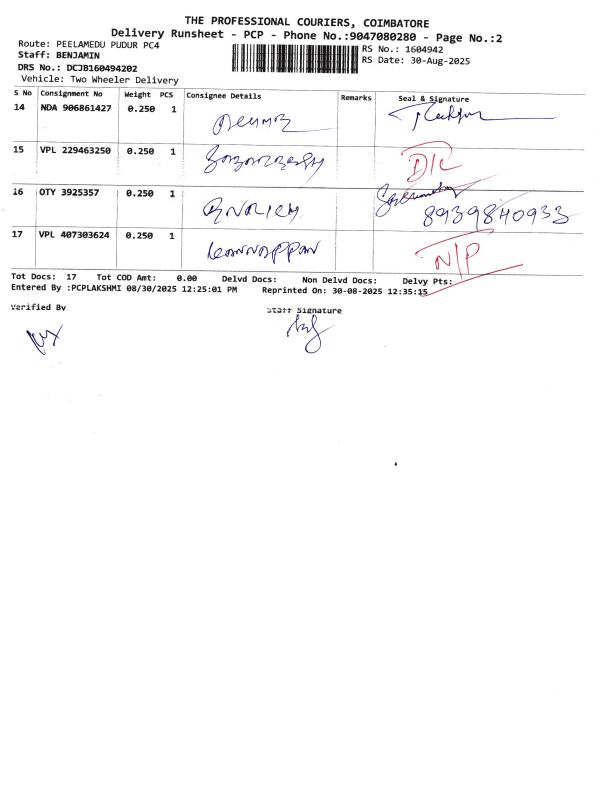 THE PROFESSIONAL COURIERS, COIMBATORE
Delivery Runsheet - PCP - Phone No.:9047080280 - Page No.:2
Route: PEELAMEDU PUDUR PC4
RS No.: 1604942
Staff: BENJAMIN
RS Date: 30-Aug-2025
DRS No.: DCJB160494202
Vehicle: Two Wheeler Delivery
S No Consignment No Weight PCS Consignee Details Remarks Seal & Signature
14 NDA 906861427 0.250 1
15 VPL 229463250 0.250 1 D/L
16 OTY 3925357 0.250 1 8939840933
17 VPL 407303624 0.250 1 N/P
Tot Docs: 17 Tot COD Amt: 0.00 Delvd Docs: Non Delvd Docs: Delvy Pts:
Entered By :PCPLAKSHMI 08/30/2025 12:25:01 PM Reprinted On: 30-08-2025 12:35:15
Verified By Staff Signature